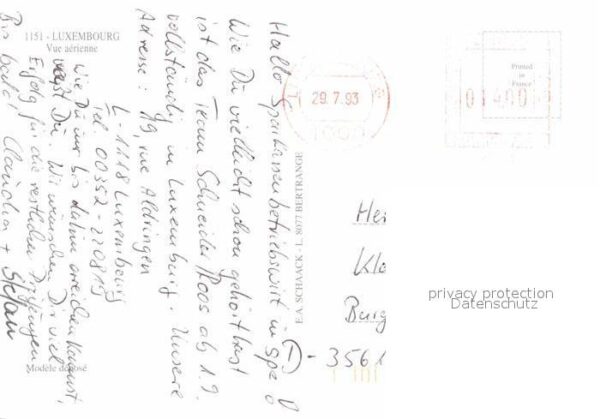 1151 - LUXEMBOURG
Vue aérienne
Hallo Sparkassenbetriebswirt in spe!
Wie Du vielleicht schon gehört hast
ist das Team Schneider/Roos ab 1.9.
vollständig in Luxemburg. Unsere
Adresse: 19, rue Aldringen
L-1118 Luxembourg
Tel. 00352-220819
Wie Du uns bis dahin erreichen kannst,
weißt Du. Wir wünschen Dir viel
Erfolg für die restlichen Prüfungen
Bis bald! Claudia + Stefan
Modèle déposé
E.A. SCHAACK - L-8077 BERTRANGE
29.7.93
1000
Printed
in
France
01400
Her
Klo
Burg
D - 3561
privacy protection
Datenschutz